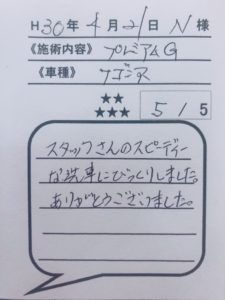 H30年4月21日 N 様
《施術内容》プレミアムG
《車種》ワゴンR
★★
★★★
5 / 5
スタッフさんのスピーディー
な洗車にびっくりしました。
ありがとうございました。